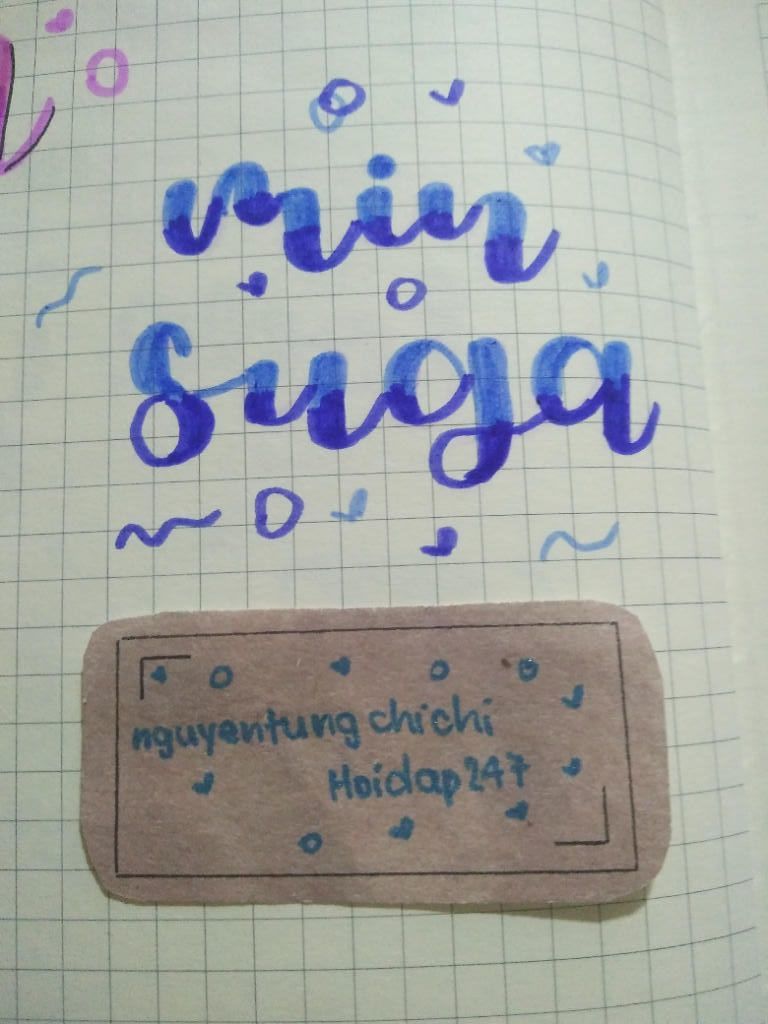 min
suga
nguyentung chichi
Hoidap247